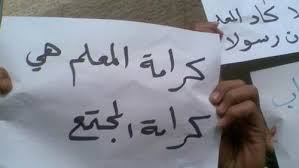 كاد المعلم
ن رسولا
كرامة المعلم هي
كرامة المجتمع